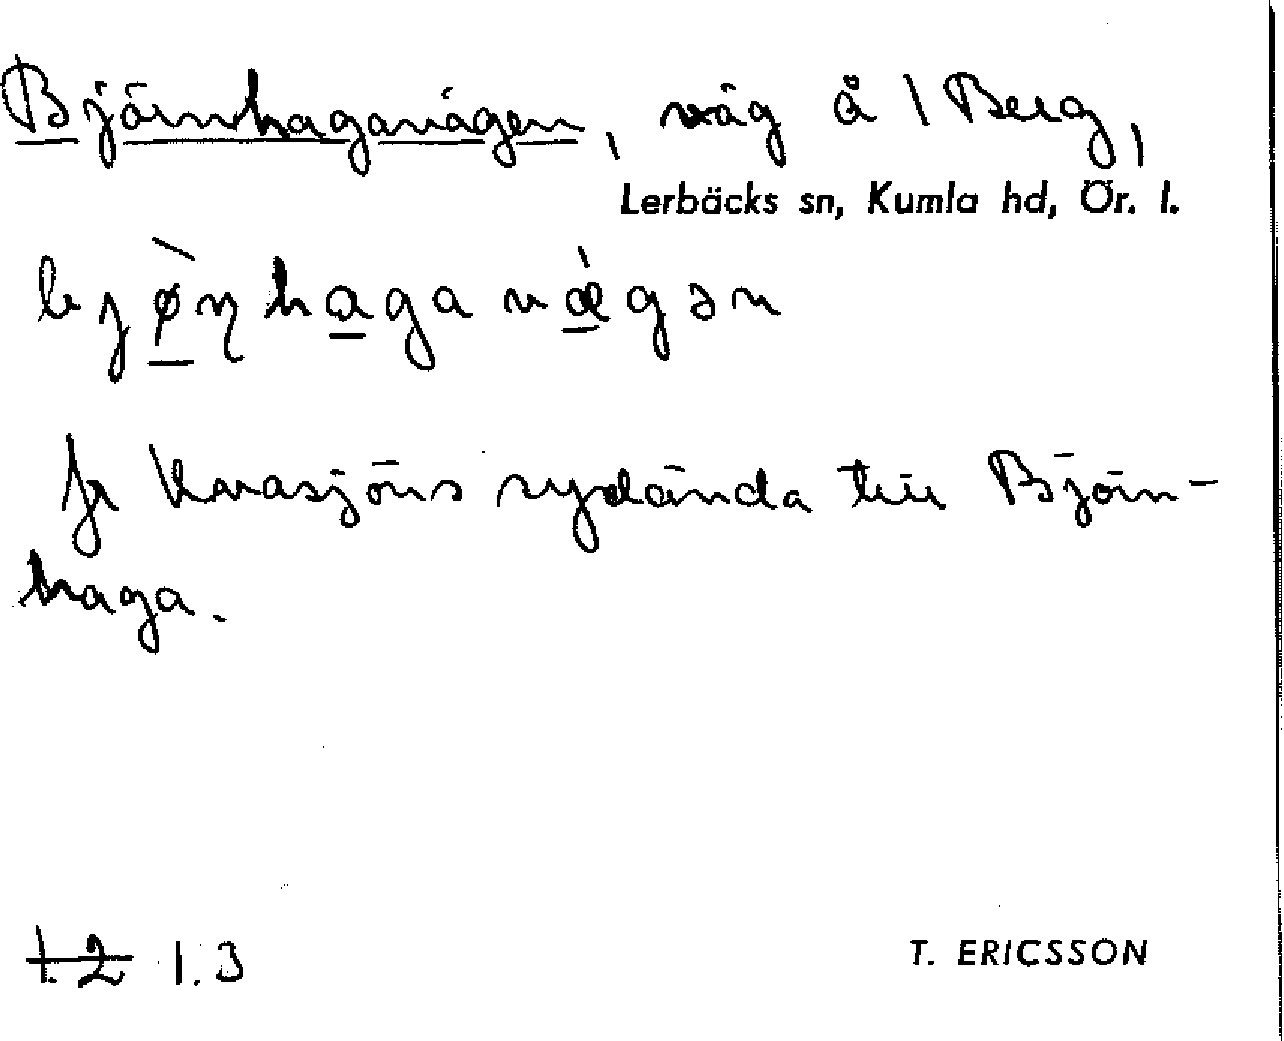 Björnhagavägen, väg å 1 Berg,
Lerbäcks sn, Kumla hd, Ör. l.
bjø̀ɳhaga vǽgən
fr Vvasjöns sydända till Björn-
haga.
1.2 1.3
T. ERICSSON